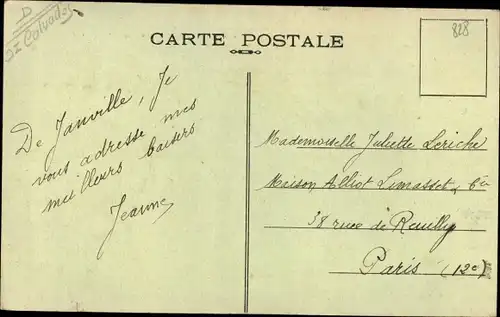 D
Calvados
CARTE POSTALE
828
De Janville, Je
vous adresse mes
meilleurs baisers
Jeanne
Mademoiselle Juliette Leriche
Maison Alliot Limasset & Cie
38 rue de Reuilly
Paris (12e)